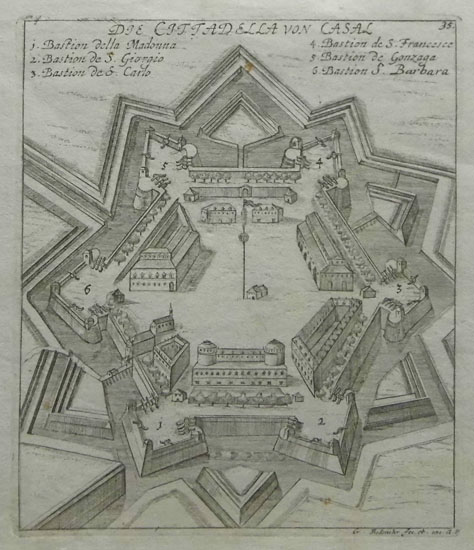 35.
DIE CITTADELLA VON CASAL
1. Bastion della Madonna
2. Bastion de S. Giorgio
3. Bastion de S. Carlo
4. Bastion de S. Francesco
5. Bastion de Gonzaga
6. Bastion S. Barbara
5
4
6
3
1
2
G. Bodenehr fec. et exc. A. V.